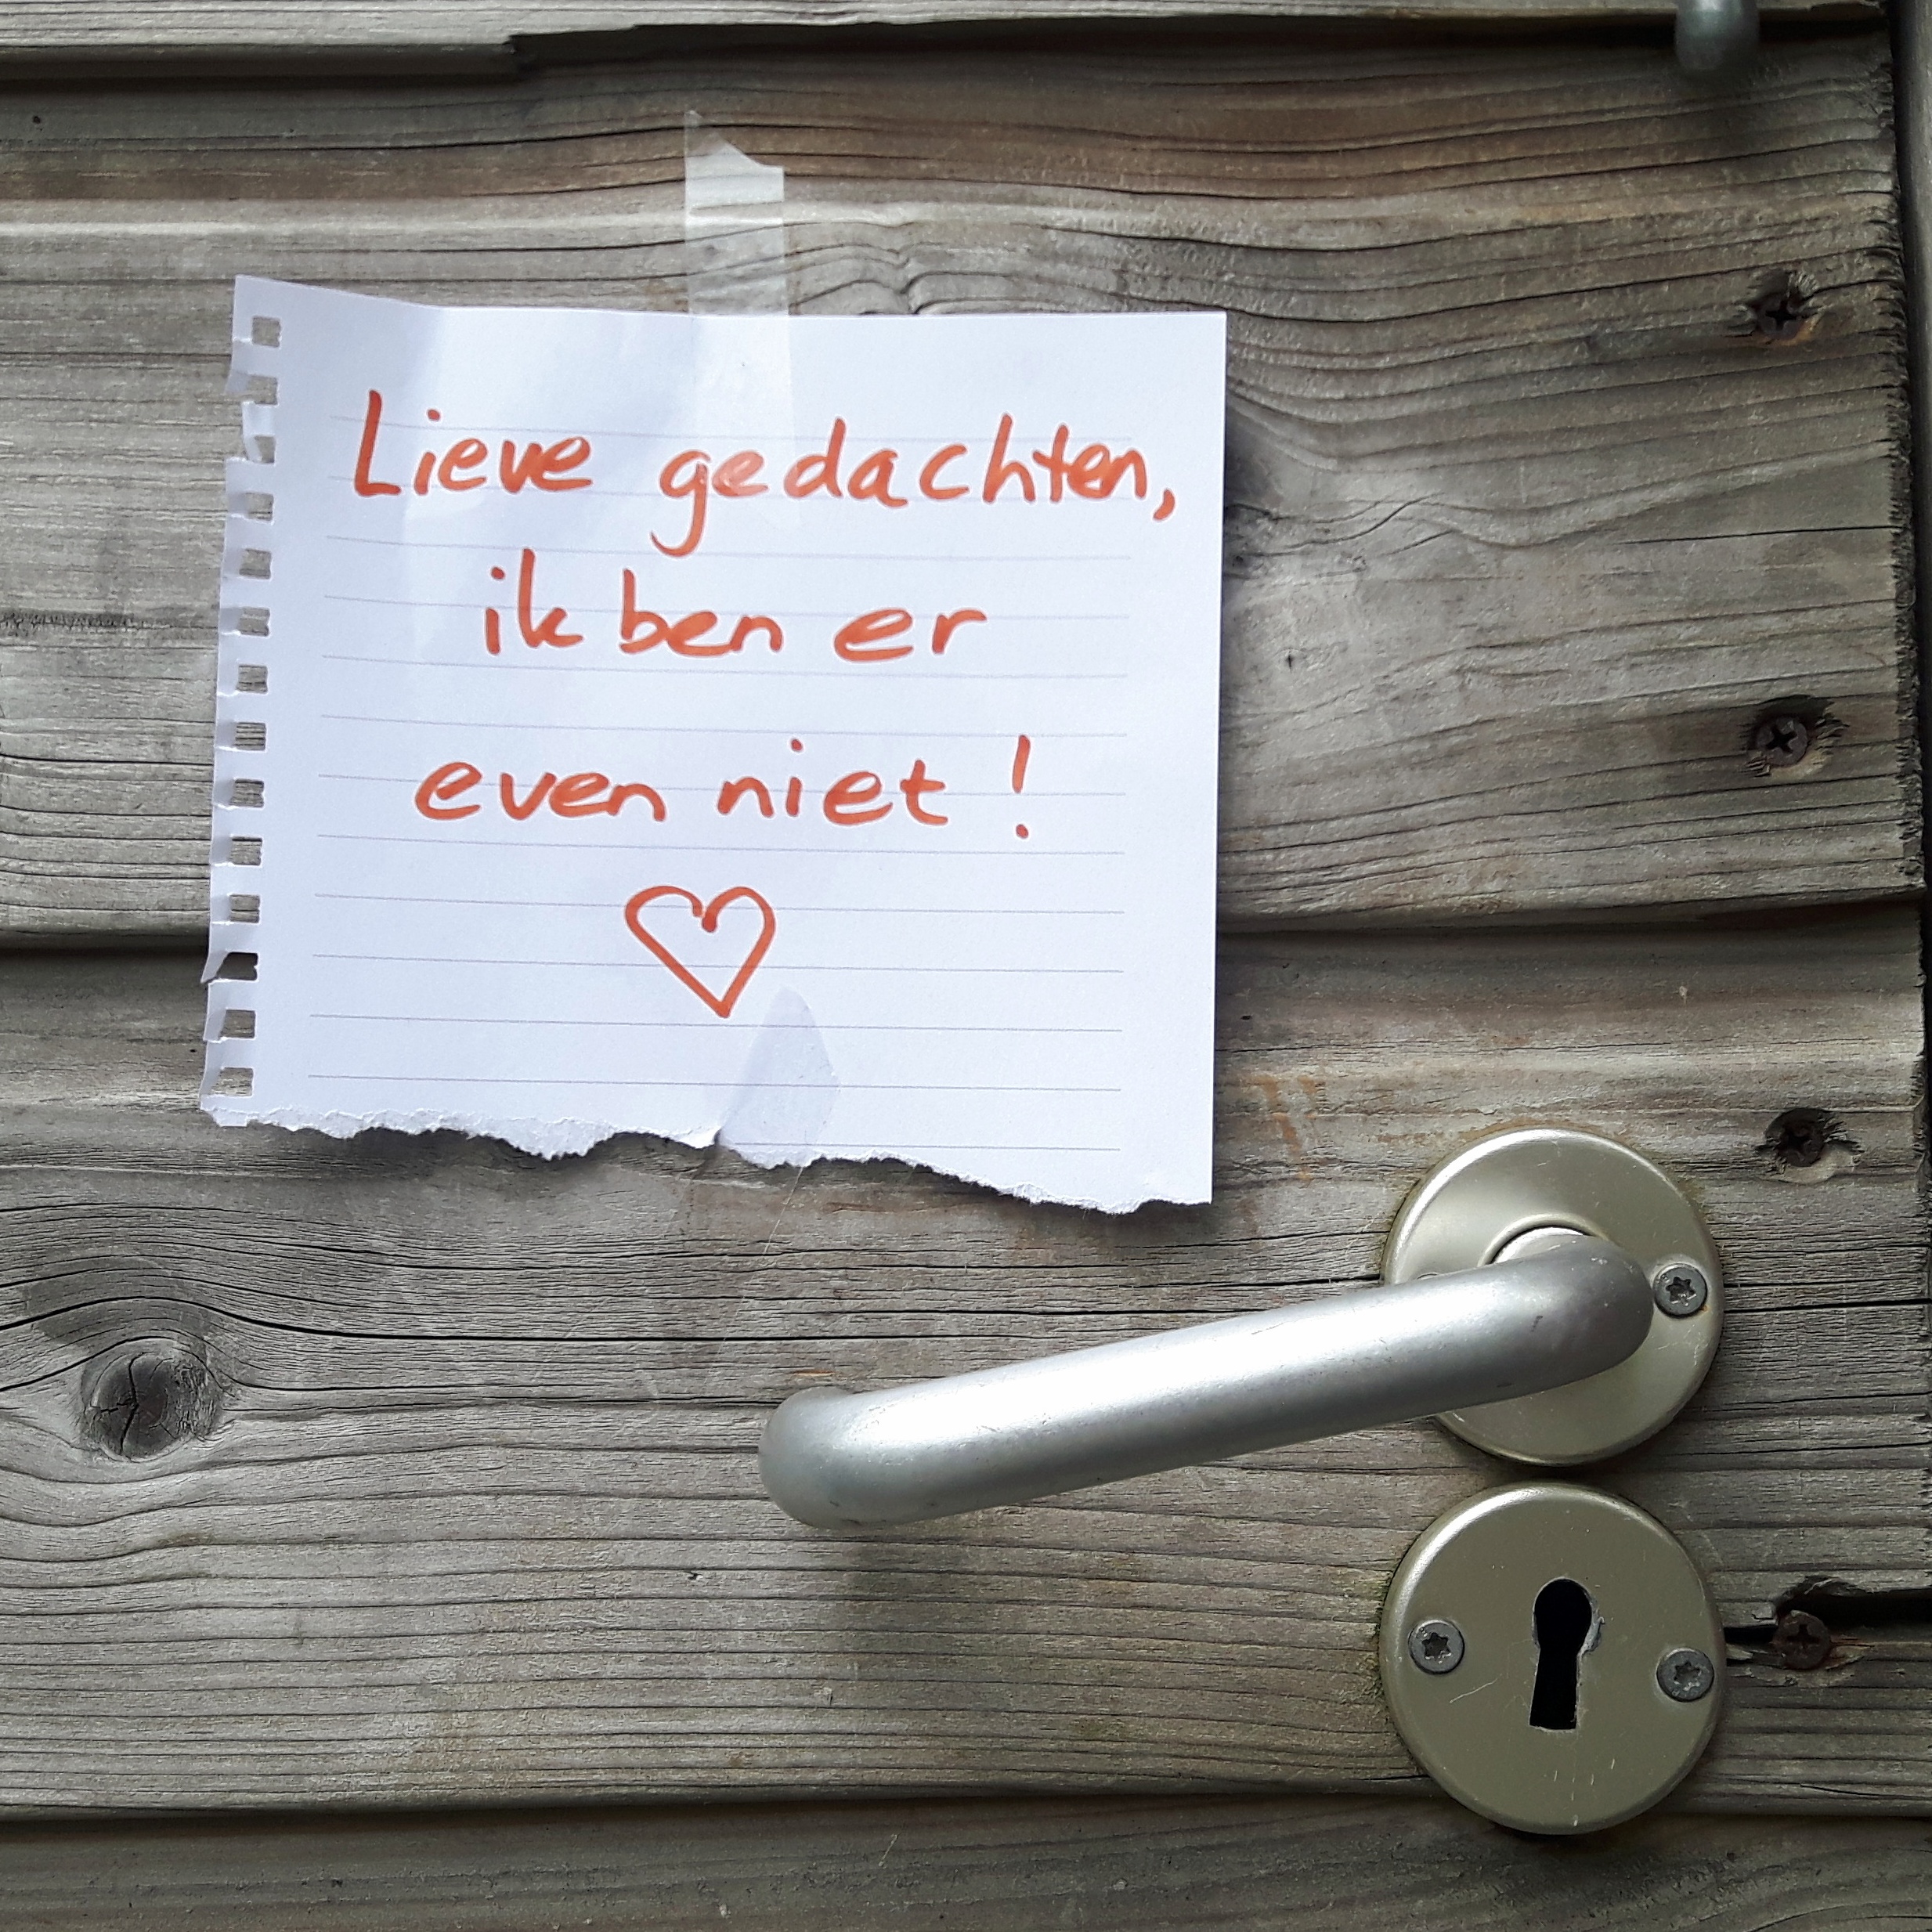 Lieve gedachten,
ik ben er
even niet!